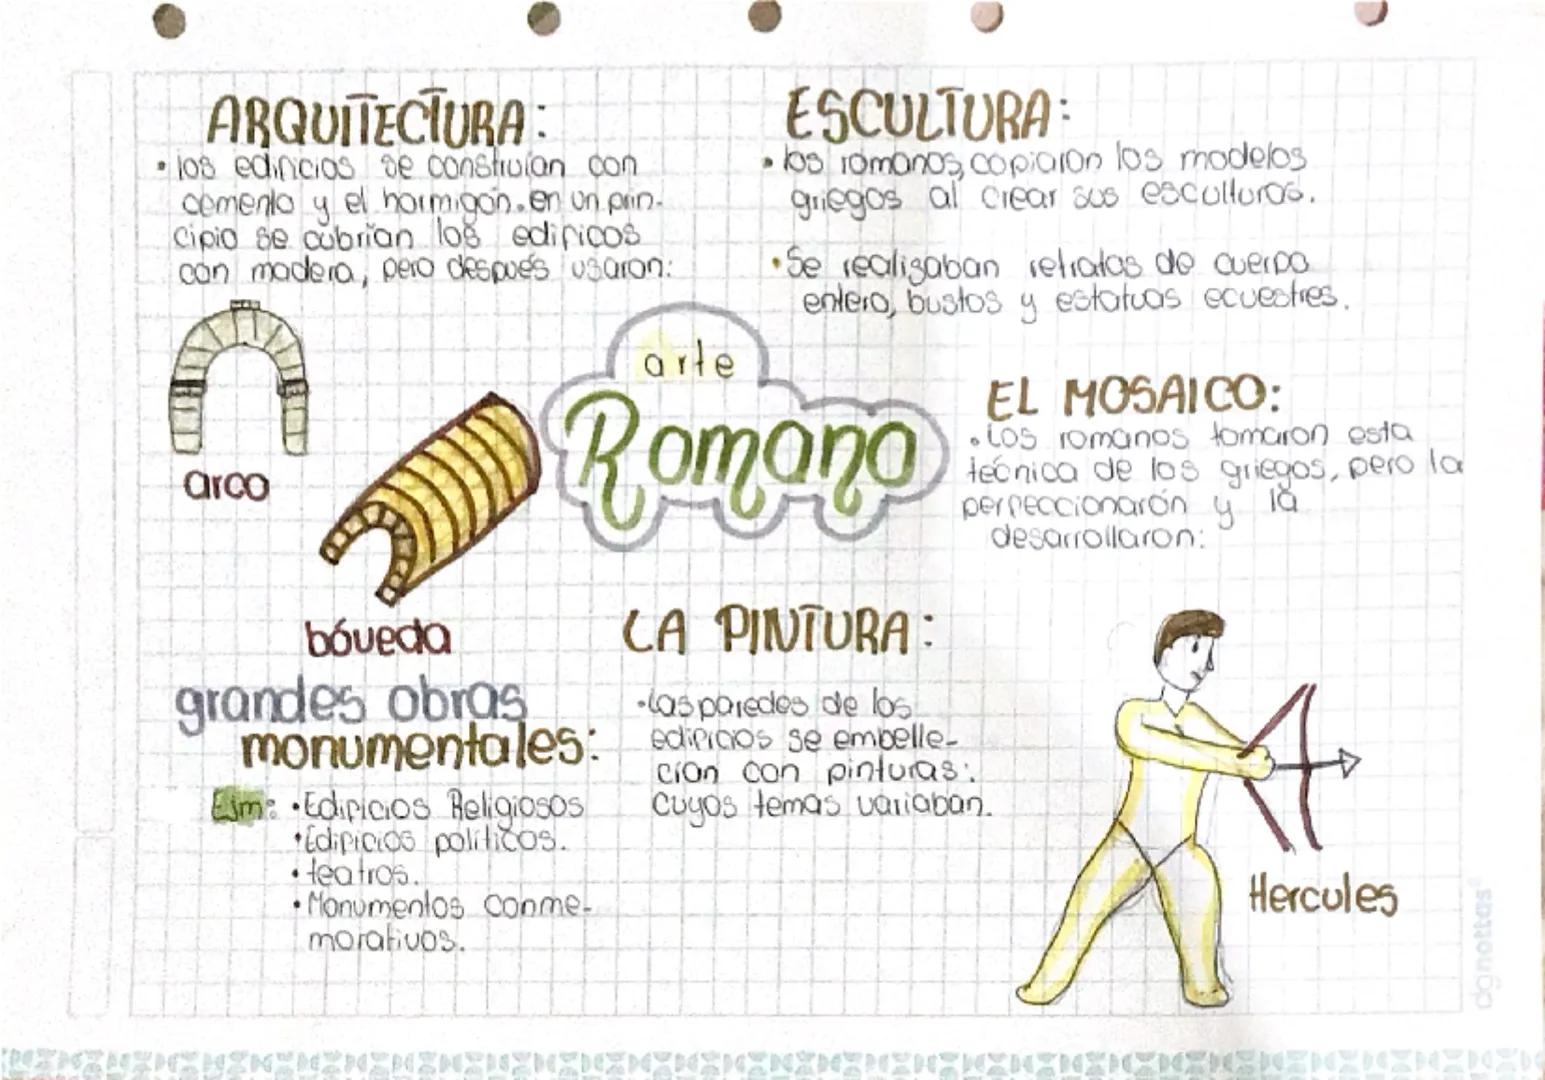 ARQUITECTURA:
• los edificios se construian con
cemento y el hormigón. en un prin-
cipio se cubrían los edificos
con madera, pero después usaron:
arco
bóveda
grandes obras
monumentales:
Ejm: • Edificios Religiosos
• Edificios políticos.
• teatros.
• Monumentos conme-
morativos.
arte
Romano
ESCULTURA:
• los romanos, copiaron los modelos
griegos al crear sus esculturas.
• Se realizaban retratos de cuerpo
entero, bustos y estatuas ecuestres.
EL MOSAICO:
• Los romanos tomaron esta
técnica de los griegos, pero la
perfeccionarón y la
desarrollaron:
LA PINTURA:
• Las paredes de los
edificios se embelle-
cian con pinturas:
cuyos temas variaban.
Hercules
dgnottas